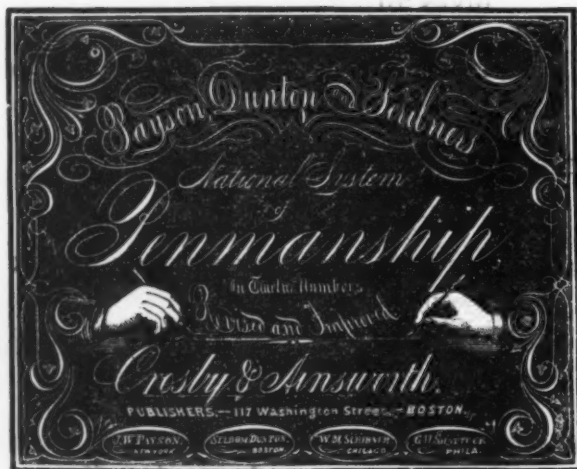 Payson, Dunton and Scribner's
National System
of
Penmanship
In Twelve Numbers
Revised and Improved
Crosby & Ainsworth.
PUBLISHERS,—117 Washington Street,—BOSTON.
J.W. PAYSON. NEW YORK SELDOM DUNTON. BOSTON W.M. SCRIBNER CHICAGO G.H. SHATTUCK PHILA.